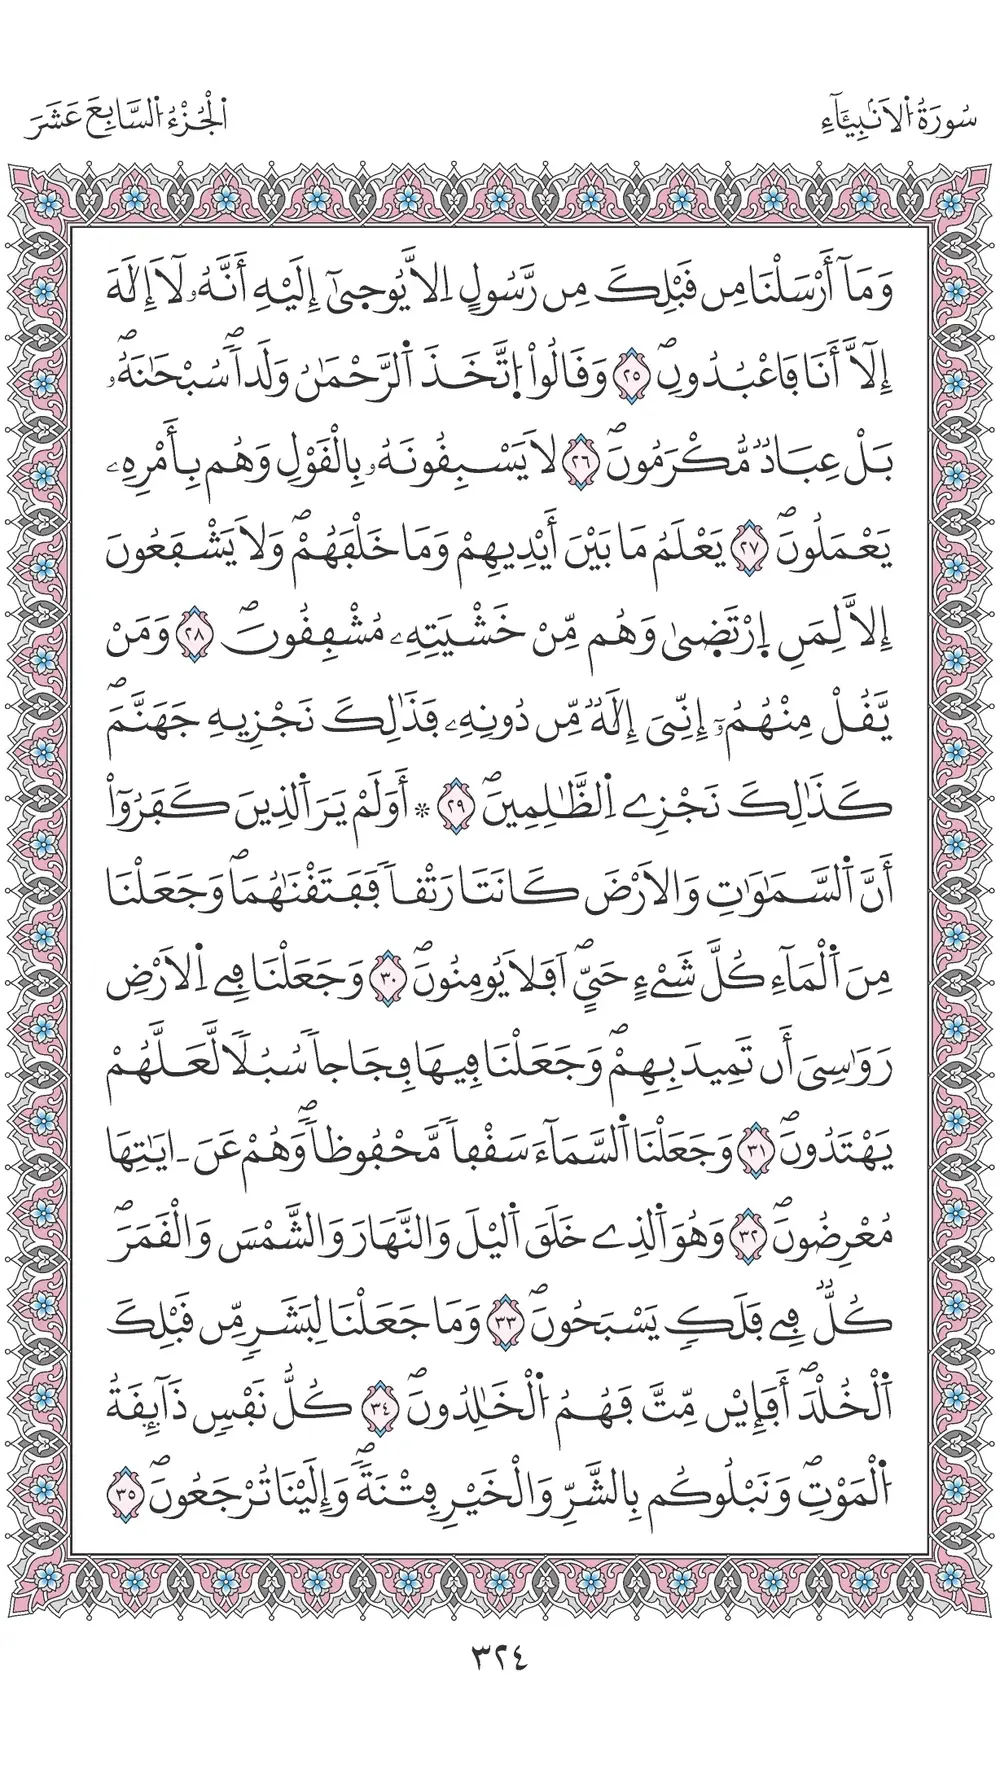 سُورَةُ الَانۢبِيَآءِ
الْجُزْءُ السَّابِعَ عَشَرَ
وَمَآ أَرْسَلْنَا مِن قَبْلِكَ مِن رَّسُولٍ اِلَّا يُوحَىٰٓ إِلَيْهِ أَنَّهُۥ لَآ إِلَٰهَ
إِلَّآ أَنَا فَاعْبُدُونِۖ ٢٥ وَقَالُواْ اُ۪تَّخَذَ اَ۬لرَّحْمَٰنُ وَلَداٗۖ سُبْحَٰنَهُۥۖ
بَلْ عِبَادٞ مُّكْرَمُونَۖ ٢٦ لَا يَسْبِقُونَهُۥ بِالْقَوْلِ وَهُم بِأَمْرِهِۦ
يَعْمَلُونَۖ ٢٧ يَعْلَمُ مَا بَيْنَ أَيْدِيهِمْ وَمَا خَلْفَهُمْۖ وَلَا يَشْفَعُونَ
إِلَّا لِمَنِ اِ۪رْتَضَىٰ وَهُم مِّنْ خَشْيَتِهِۦ مُشْفِقُونَۖ ٢٨ وَمَنْ
يَّقُلْ مِنْهُمُۥٓ إِنِّيَ إِلَٰهٞ مِّن دُونِهِۦ فَذَٰلِكَ نَجْزِيهِ جَهَنَّمَۖ
كَذَٰلِكَ نَجْزِے اِ۬لظَّٰلِمِينَۖ ٢٩ * أَوَلَمْ يَرَ اَ۬لذِينَ كَفَرُوٓاْ
أَنَّ اَ۬لسَّمَٰوَٰتِ وَالَارْضَ كَانَتَا رَتْقاٗ فَفَتَقْنَٰهُمَاۖ وَجَعَلْنَا
مِنَ اَ۬لْمَآءِ كُلَّ شَےْءٍ حَيٍّۖ اَفَلَا يُومِنُونَۖ ٣٠ وَجَعَلْنَا فِے اِ۬لَارْضِ
رَوَٰسِيَ أَن تَمِيدَ بِهِمْۖ وَجَعَلْنَا فِيهَا فِجَاجاٗ سُبُلاٗ لَّعَلَّهُمْ
يَهْتَدُونَۖ ٣١ وَجَعَلْنَا اَ۬لسَّمَآءَ سَقْفاٗ مَّحْفُوظاٗۖ وَهُمْ عَنَ ـايَٰتِهَا
مُعْرِضُونَۖ ٣٢ وَهُوَ اَ۬لذِے خَلَقَ اَ۬ليْلَ وَالنَّهَارَ وَالشَّمْسَ وَالْقَمَرَۖ
كُلّٞ فِے فَلَكٖ يَسْبَحُونَۖ ٣٣ وَمَا جَعَلْنَا لِبَشَرٖ مِّن قَبْلِكَ
اَ۬لْخُلْدَۖ أَفَإِيْن مِّتَّ فَهُمُ اُ۬لْخَٰلِدُونَۖ ٣٤ كُلُّ نَفْسٖ ذَآئِقَةُ
اُ۬لْمَوْتِۖ وَنَبْلُوكُم بِالشَّرِّ وَالْخَيْرِ فِتْنَةٗۖ وَإِلَيْنَا تُرْجَعُونَۖ ٣٥
٣٢٤